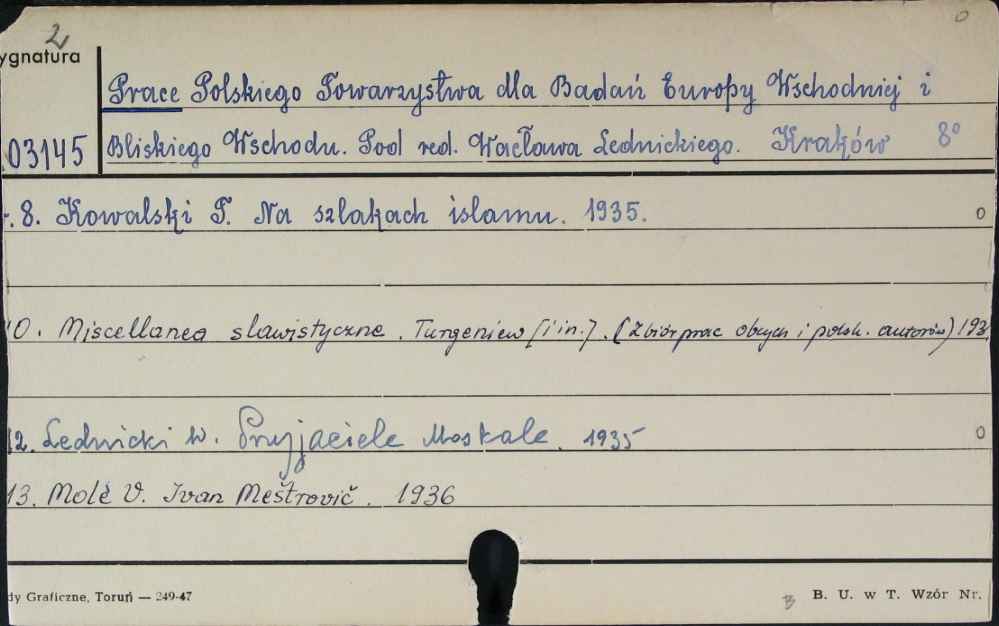 2 0
ygnatura
Prace Polskiego Towarzystwa dla Badań Europy Wschodniej i
03145 Bliskiego Wschodu. Pod red. Wacława Lednickiego. Kraków 8°
8. Kowalski T. Na szlakach islamu. 1935. 0
0. Miscellanea slawistyczne. Turgeniew [i in.]. (Zbiór prac obcych i polsk. autorów) 193
12. Lednicki W. Przyjaciele Moskale. 1935 0
13. Molè V. Ivan Meštrovič. 1936
dy Graficzne, Toruń — 249-47 B B. U. w T. Wzór Nr.